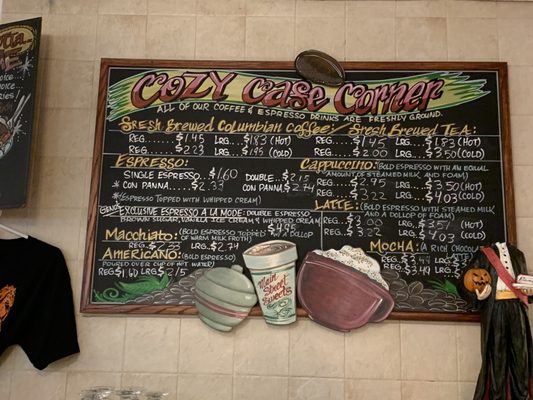 Cozy Case Corner
ALL OF OUR COFFEE & ESPRESSO DRINKS ARE FRESHLY GROUND.
Sresh Brewed Columbian Coffee: Sresh Brewed Tea:
REG.....$1.45 LRG...$1.83 (HOT) REG.....$1.45 LRG...$1.83 (HOT)
REG.....$2.23 LRG...$1.95 (COLD) REG.....$2.00 LRG...$3.50 (COLD)
Espresso: Cappuccino: (BOLD ESPRESSO WITH AN EQUAL
AMOUNT OF STEAMED MILK, AND FOAM)
SINGLE ESPRESSO..$1.60 DOUBLE..$2.15 REG...$2.95 LRG...$3.50 (HOT)
* CON PANNA....$2.33 CON PANNA..$2.74 REG...$3.22 LRG...$4.03 (COLD)
*(ESPRESSO TOPPED WITH WHIPPED CREAM)
Latte: (BOLD ESPRESSO WITH STEAMED MILK
AND A DOLLOP OF FOAM)
EXCLUSIVE ESPRESSO A LA MODE: DOUBLE ESPRESSO
BROWN SUGAR, VANILLA ICE CREAM AND WHIPPED CREAM
$4.95
REG...$3.00 LRG...$3.57 (HOT)
REG...$3.22 LRG...$4.03 (COLD)
Macchiato: (BOLD ESPRESSO TOPPED
WITH WARM MILK FROTH)
REG..$2.33 LRG..$2.74
Mocha: (A RICH CHOCOLATE
REG..$3.44 LRG
REG..$3.44 LRG
Americano: (BOLD ESPRESSO
POURED OVER CUP OF HOT WATER)
REG $1.60 LRG $2.15
Main Street Sweets